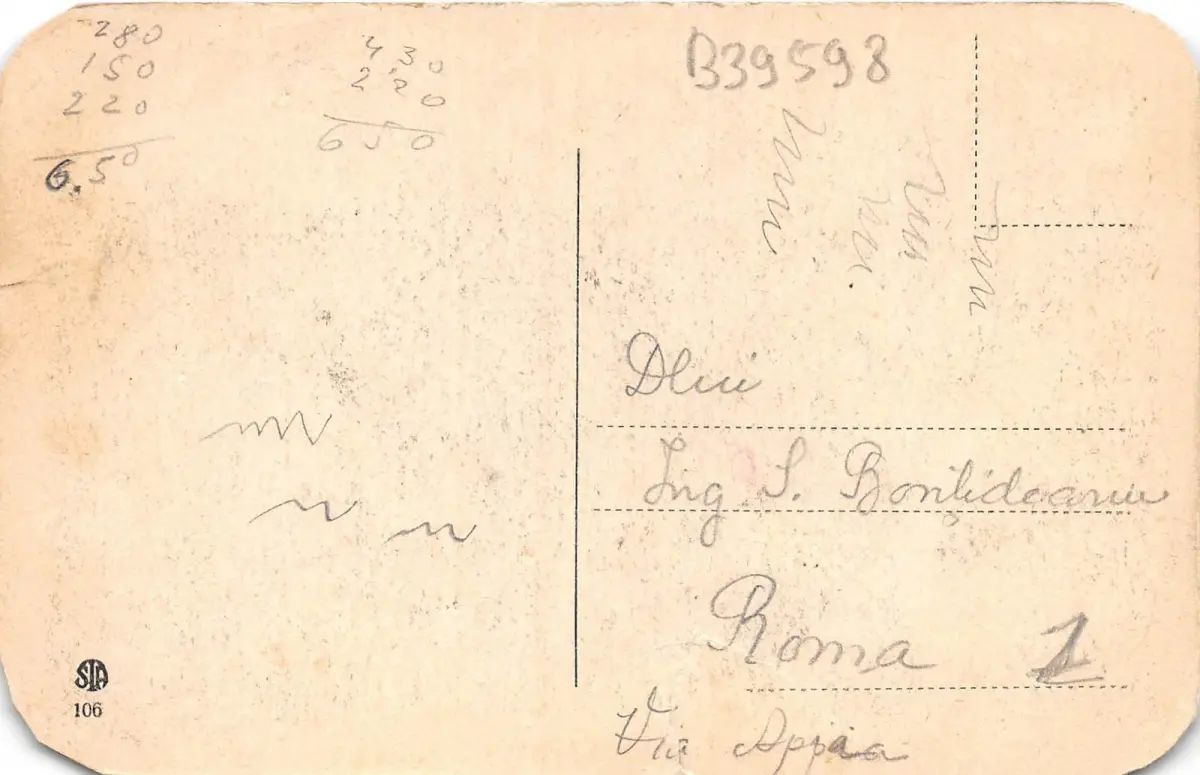 280
150
220
6.50
430
220
650
B39598
Dlui
Ing S.
Roma 1
Via Appia
STA
106